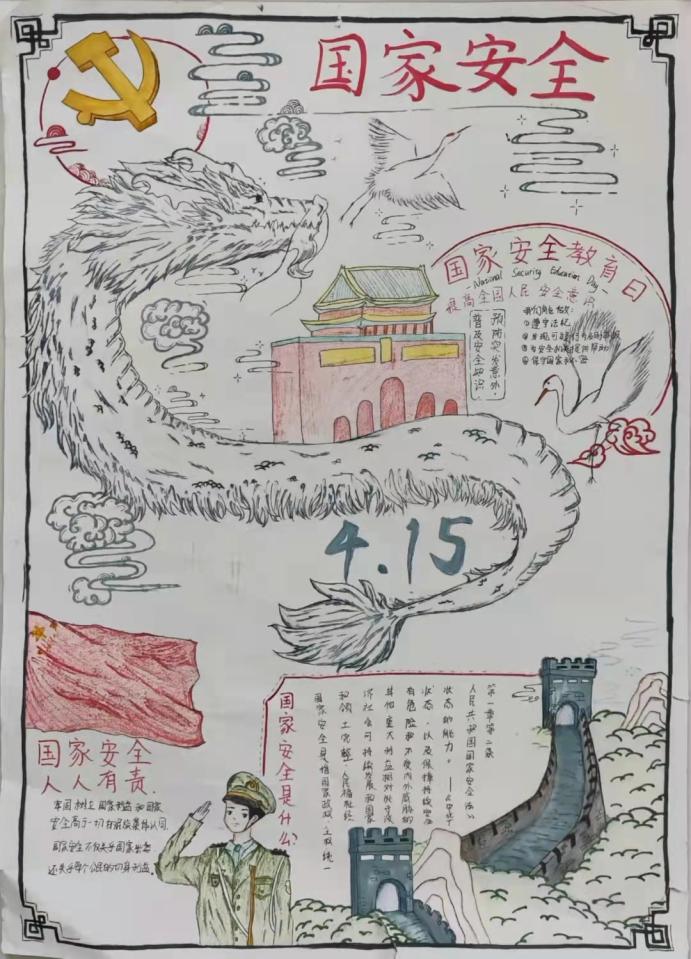 国家安全
国家安全教育日
National Security Education Day
提高全国人民安全意识
我们应该做:
①遵守法纪
④保守国家秘密
预防突发意外,
普及安全知识
4.15
国家安全
人人有责.
安全高于一切
国家安全不仅关乎国家
还关乎每个公民的切身利益。
国家安全是什么
国家安全是指国家政权、主权、统一
和领土完整、人民福祉、经
济社会可持续发展和国家
其他重大利益相对处于没
有危险和不受内外威胁的
状态,以及保障持续安全
状态的能力。——《中华
人民共和国国家安全法》
第一章第二条